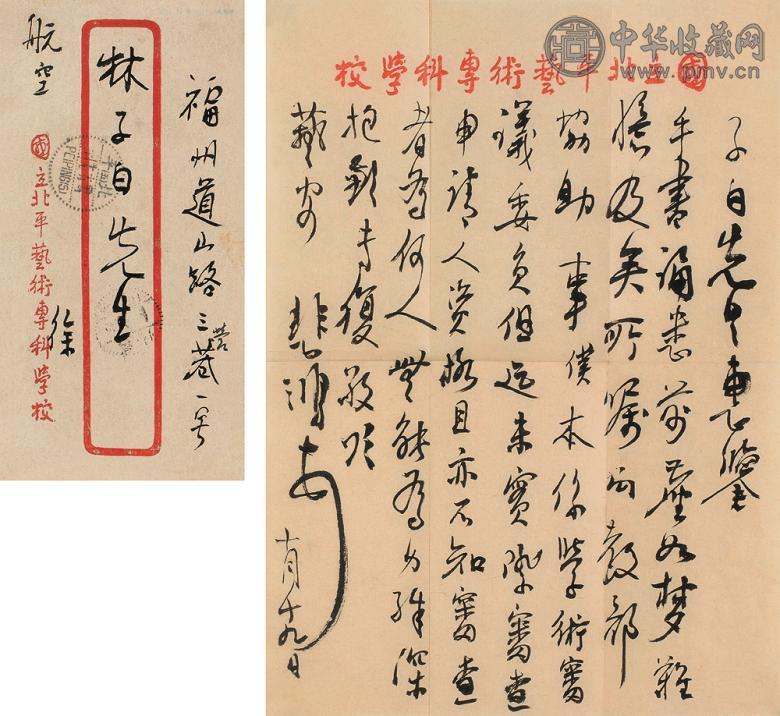 福州道山路三營巷一号
林子白先生
航空
國立北平藝術專科學校
徐
PEIPING
中华收藏网
www.pmv.cn
國立北平藝術專科學校
子白先生惠鑒
手書誦悉前塵如梦難
憶及矣所囑向教部
協助事僕本係學術審
議委員但迄未實際審查
申請人資格且亦不知審查
者為何人無能為力殊深
抱歉專復敬頌
藝安
悲鴻
十月十九日